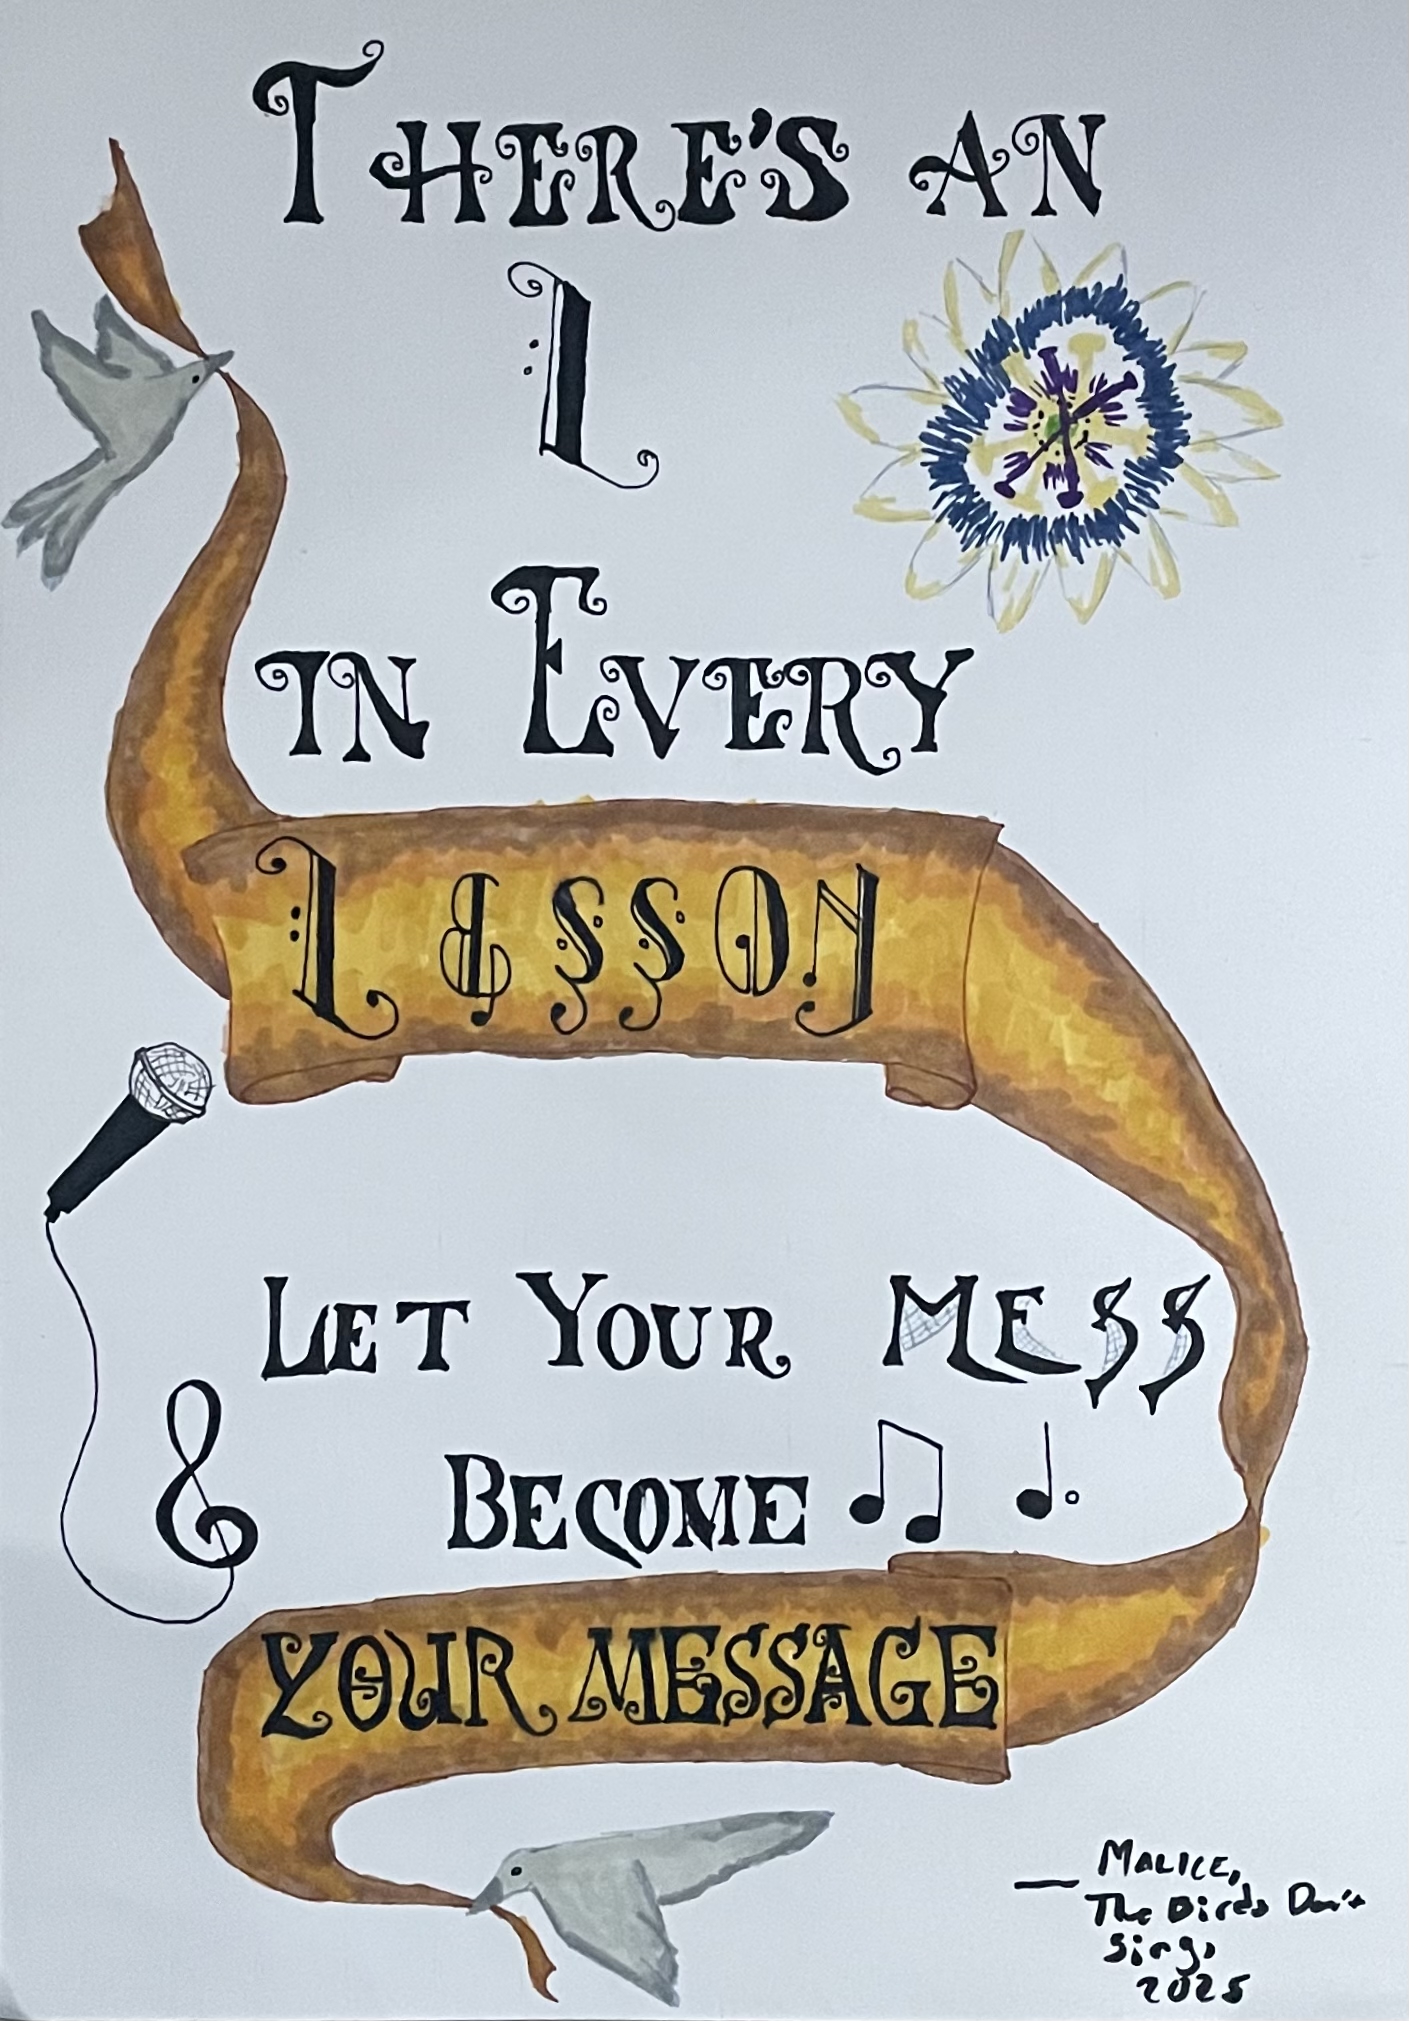 THERE'S AN
L
IN EVERY
LESSON
LET YOUR MESS
BECOME
YOUR MESSAGE
— MALICE,
The Birds Don't
Sing,
2025